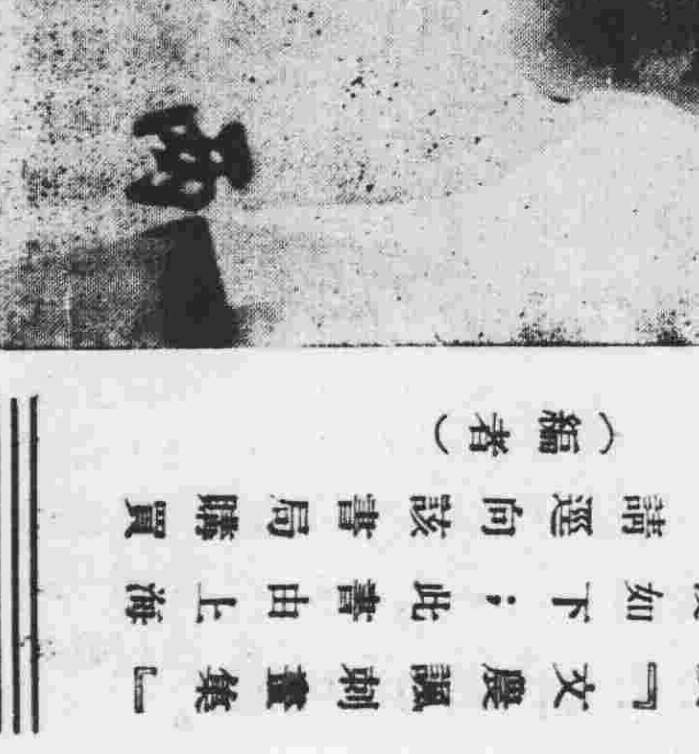 『文農諷刺畫集』
如下；此書由上海
請逕向該書局購買
（編者）